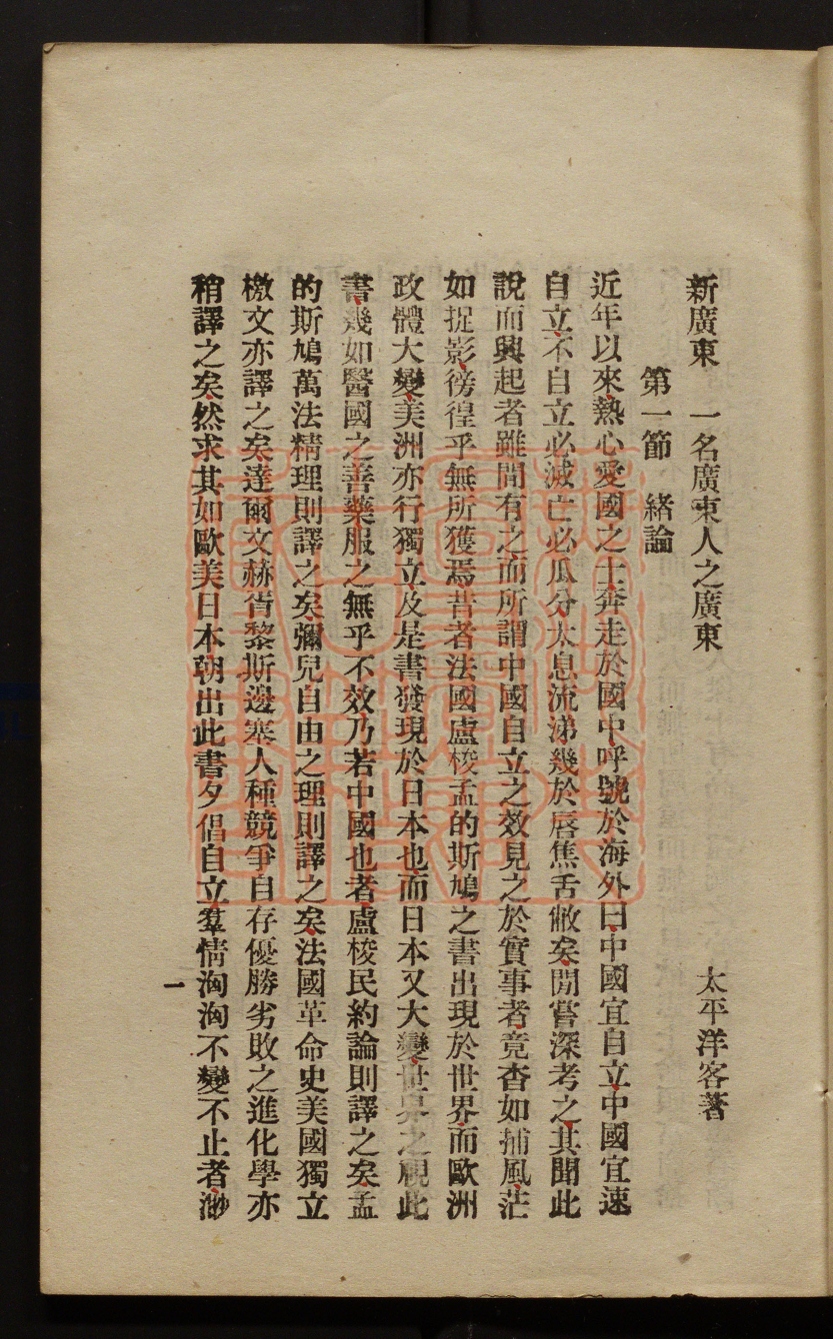 新廣東　一名廣東人之廣東　太平洋客著
第一節　緒論
近年以來熱心愛國之士奔走於國中呼號於海外曰中國宜自立中國宜速
自立不自立必滅亡必瓜分太息流涕幾於唇焦舌敝矣間嘗深考之其聞此
說而興起者雖間有之而所謂中國自立之效見之於實事者竟杳如捕風茫
如捉影徬徨乎無所獲焉昔者法國盧梭孟的斯鳩之書出現於世界而歐洲
政體大變美洲亦行獨立及是書發現於日本也而日本又大變世界之視此
書幾如醫國之善藥服之無乎不效乃若中國也者盧梭民約論則譯之矣孟
的斯鳩萬法精理則譯之矣彌兒自由之理則譯之矣法國革命史美國獨立
檄文亦譯之矣達爾文赫胥黎斯邊塞人種競爭自存優勝劣敗之進化學亦
稍譯之矣然求其如歐美日本朝出此書夕倡自立羣情洶洶不變不止者渺
一